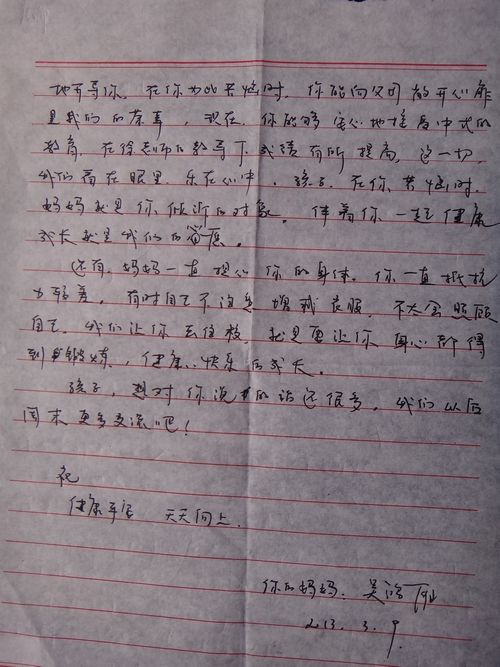 地开导你。在你为此苦恼时，你能向父母敞开心扉
是我们的荣幸，现在，你能够安心地接受中式的
教育，在徐老师的教导下，成绩有所提高，这一切，
我们看在眼里，乐在心中。孩子，在你苦恼时，
妈妈就是你倾诉的对象。伴着你一起健康
成长就是我们的心愿。
还有，妈妈一直担心你的身体，你一直抵抗
力弱差，有时自己不注意增减衣服，不太会照顾
自己。我们让你去住校，就是要让你身心都得
到锻炼，健康、快乐的成长。
孩子，想对你说的话还很多，我们以后
周末更多交流吧！
祝
健康平安 天天向上.
你的妈妈. 吴
2013. 3. 9.